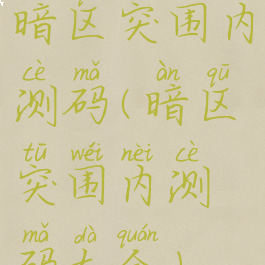 暗区突围内
cè mǎ àn qū
测码(暗区
tū wéi nèi cè
突围内测
mǎ dà quán
码大全)